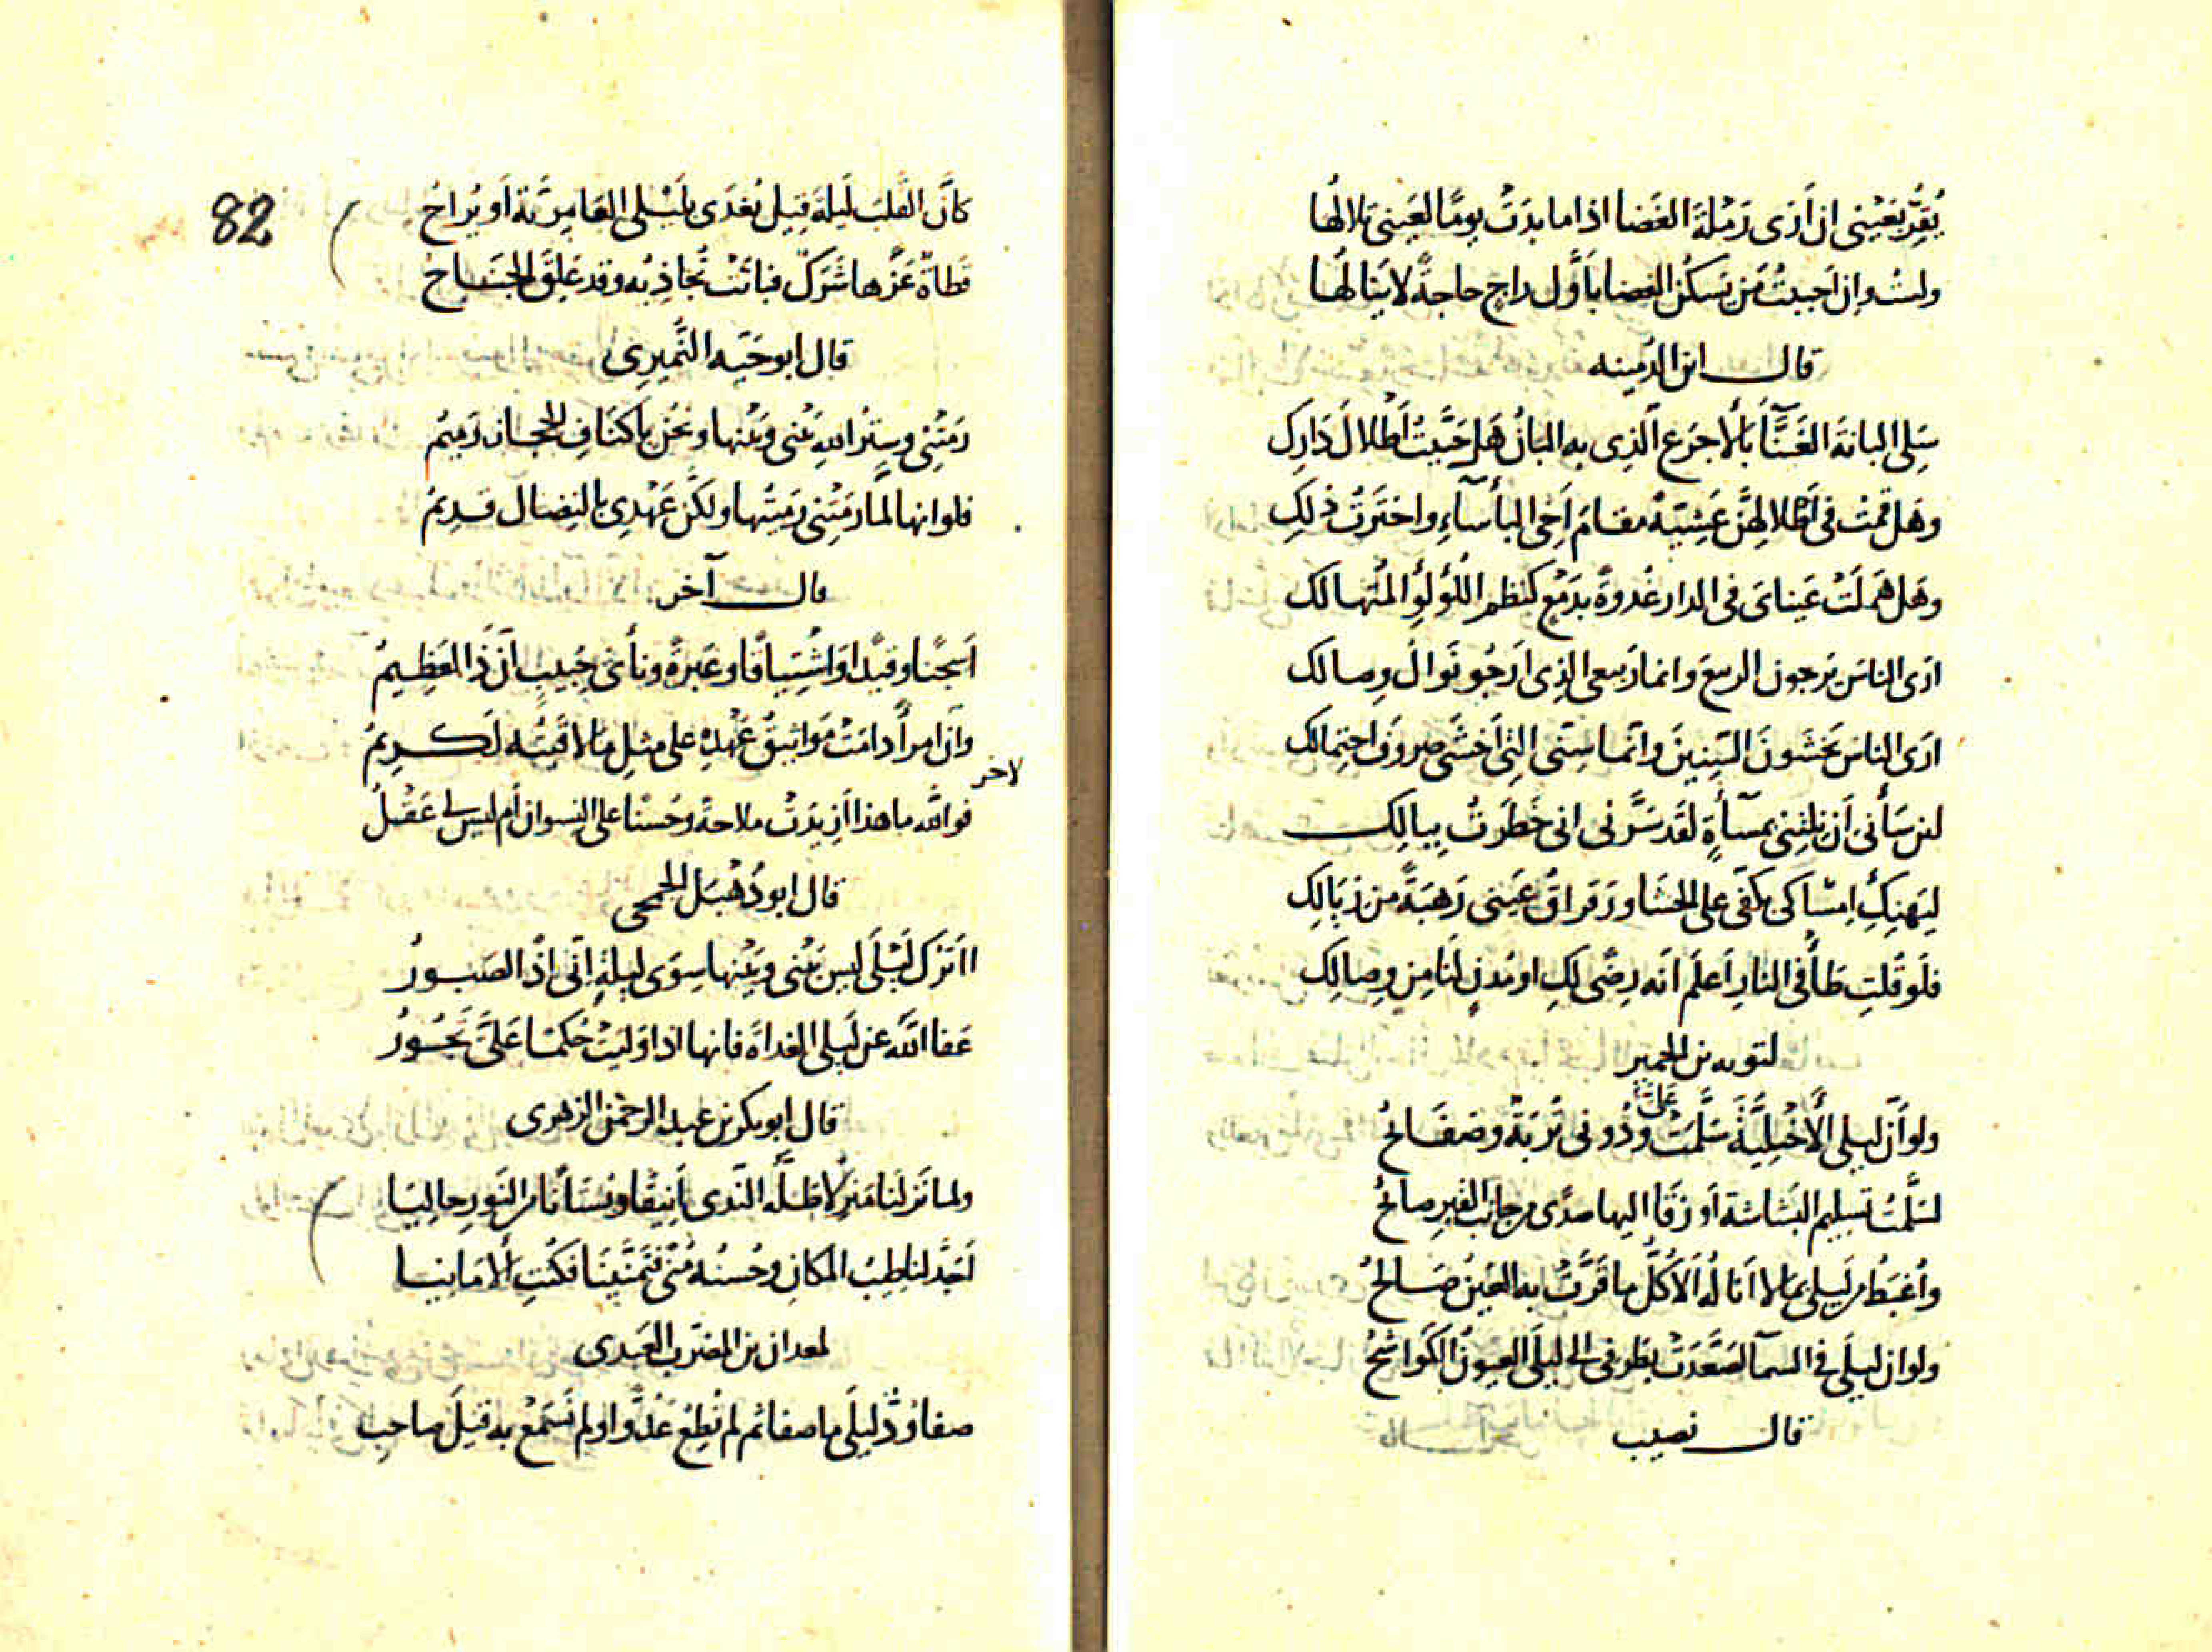 يُقِرُّ بعَيْنى ان اَرَى رَمْلَةَ الغَضا اذا ما بدَتْ يومًا لعَيْنى تِلالُها
ولستُ وان اَحببتُ مَن يَسكُنُ الغضا باَوَّل راجٍ حاجةً لا يَنالُها
قال ابن الدُمينه
سَلِى البانَةَ الغَنَّآ بالأجرَع الَّذِى بهِ البانُ هَل حَيَّيتُ اَطْلالَ دَارِكِ
وهَل قمتُ فى اَطْلالِهِنَّ عَشِيّةً مقامَ اَخِى البأسآءِ واختَرتُ ذٰلِكِ
وهَل هَمَلَتْ عَيناىَ فى الدار غُدوةً بدَمْعٍ كنظم اللُؤلُؤِ المُتهالك
ارَى الناسَ يَرجون الربيع وانما رَبيعى الذِى اَرجُو نَوالُ وِصالك
ارَى الناسَ يَخشَونَ السِنِينَ وانّما سِنىّ التِى اَخشَى صروفُ احتِمالك
لئن سَأنى اَن نِلتِنِى بمسآةٍ لقَد سَرَّنى انى خَطَرتُ بِبالِك
لِيَهنِكِ اِمسَاكى بكفّى على الحشَا ورَقراقُ عَينى رَهبَةً من زِيَالِكِ
فلَو قلتِ طأ فى النارِ اَعلَم اَنه رِضًى لكِ او مُدنٍ لنا مِن وِصالِك
لتوبه بن الحمير
ولو اَنّ ليلى الأخْيلِيَّةَ سَلَّمَتْ عَلَىَّ ودُونى تُربَةٌ وصَفَائحُ
لسَلَّمتُ تسليم البَشاشة اَو زَقَا اليها صدًى من جانب القبرِ صائحُ
واُغبَطُ من لَيلى بما لا اَنالُهُ اَلا كُلُّ ما قَرَّتْ به العَينُ صَالحُ
ولو ان ليلَى فى السمآ لصَعَّدَتْ بطَرفى الى ليلَى العيونُ الكَواشحُ
قال نصيب
82
كانَّ القلبَ لَيلةَ قِيل يُغدَى بلَيْلى العَامِرِيَّة اَو يُراحُ
قطاةٌ عَزَّها شَرَكٌ فباتَتْ تُجاذِبُه وقد عَلِقَ الجنَاحُ
قال ابو حَيّه النُّمَيرِى
رَمَتْنِى وسِتْرُ اللهِ بَيْنى وبَيْنها ونحْنُ باَكنَافِ الحجاز رَمِيمُ
فلو انها لما رمَتْنى رَميتُها ولكنَّ عَهْدِى بالنِضال قدِيمُ
قال آخر
اَسِجْنًا وقَيْدًا وَاشْتِيَاقًا وعَبرَةً ونأىَ حَبيبٍ اِنّ ذَا لعَظِيمُ
واِنَّ امرأً دامَتْ مَواثيقُ عَهْدِهِ على مثلِ ما لاقَيتُه لَكَرِيمُ
لاخر
فواللَّه ما هذا اَزِيدَتْ ملاحةً وحُسْنًا على النِسوان اَم ليس لى عَقْلُ
قال ابو دُهْبَل الجمحى
ااَترُك لَيْلَى ليس بَيْنى وبَيْنها سِوَى ليلةٍ اِنّى اذًا لصَبورُ
عَفا اللَّه عن لَيلى الغداةَ فانها اذا وَلِيَتْ حُكمًا عَلَىَّ تَجُورُ
قال ابو بكر بن عبد الرحمٰن الزهرى
ولما نَزَلنا مَنزِلًا طَلَّه النَّدى اَنِيقًا وبُستَانًا من النَورِ حالِيَا
اَجَدَّ لنا طِيبُ المكانِ وحُسنُهُ مُنًى فتَمَنَّينَا فكُنتِ الاَمَانِيا
لمعدان بن المضرّب العَبدى
صفا وُدُّ ليلَى ما صفا ثم لم نُطِع عَدُوًّا ولم نَسمَعْ به قيلَ صاحبِ